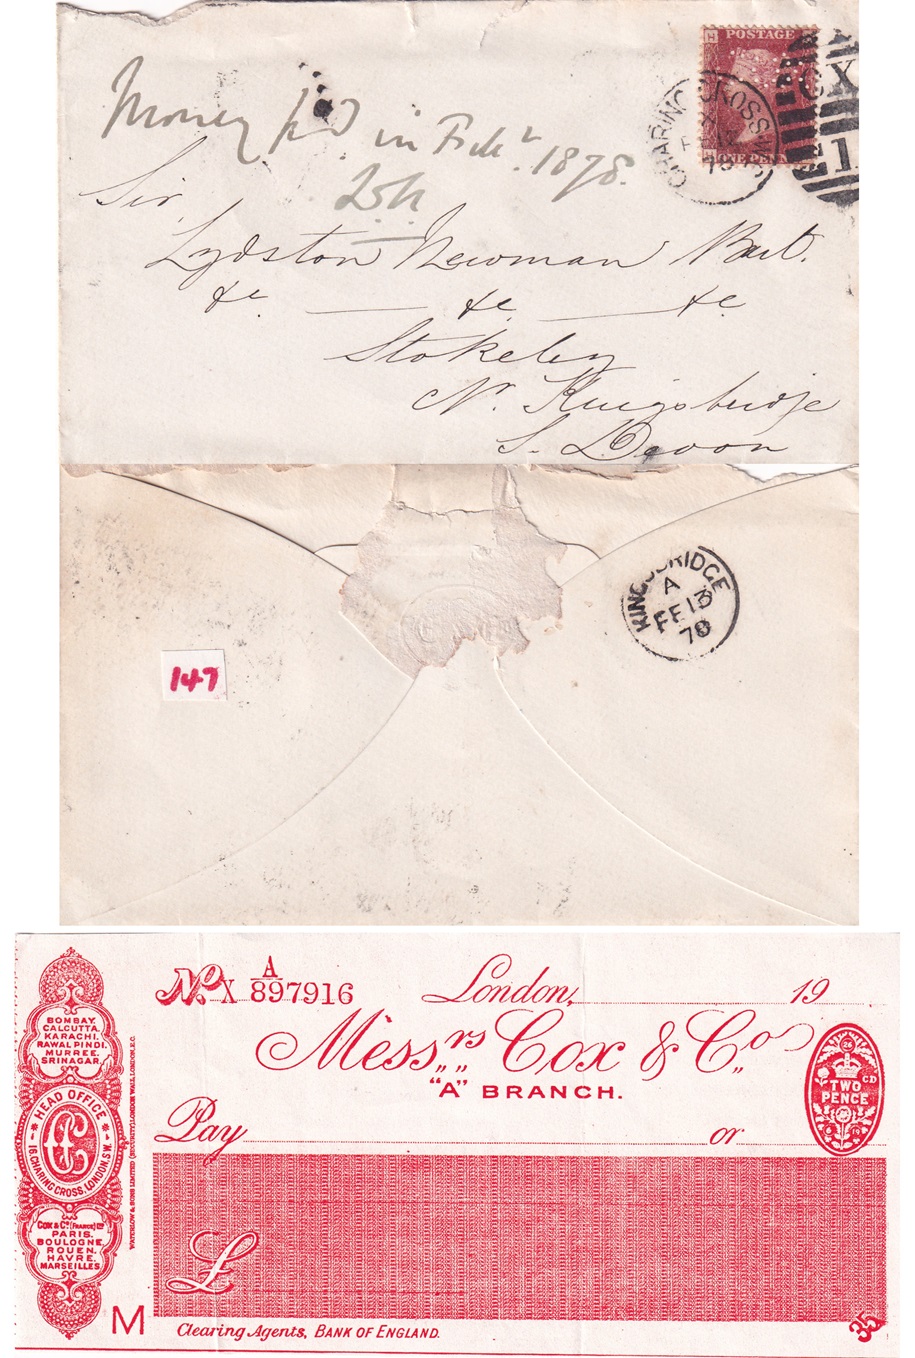 POSTAGE
H
ONE PENNY
CX
1
CHARING CROSS W.C
78
Money pd in Feb. 1878.
Sir
Lydston Newman Bart.
&c. &c. &c
Stokeley
Nr. Kingsbridge
S. Devon
KINGSBRIDGE
A
FE 13
78
147
No. X A/897916
London, 19
Messrs Cox & Co.
"A" BRANCH.
TWO
PENCE
Pay or
£
BOMBAY,
CALCUTTA,
KARACHI,
RAWALPINDI,
MURREE,
SRINAGAR.
HEAD OFFICE
16, CHARING CROSS, LONDON, S.W.
COX & Co (FRANCE) LTD
PARIS,
BOULOGNE,
ROUEN,
HAVRE,
MARSEILLES
WATERLOW & SONS LIMITED (SECURITY) LONDON WALL, LONDON, E.C.
M
Clearing Agents, BANK OF ENGLAND.
35